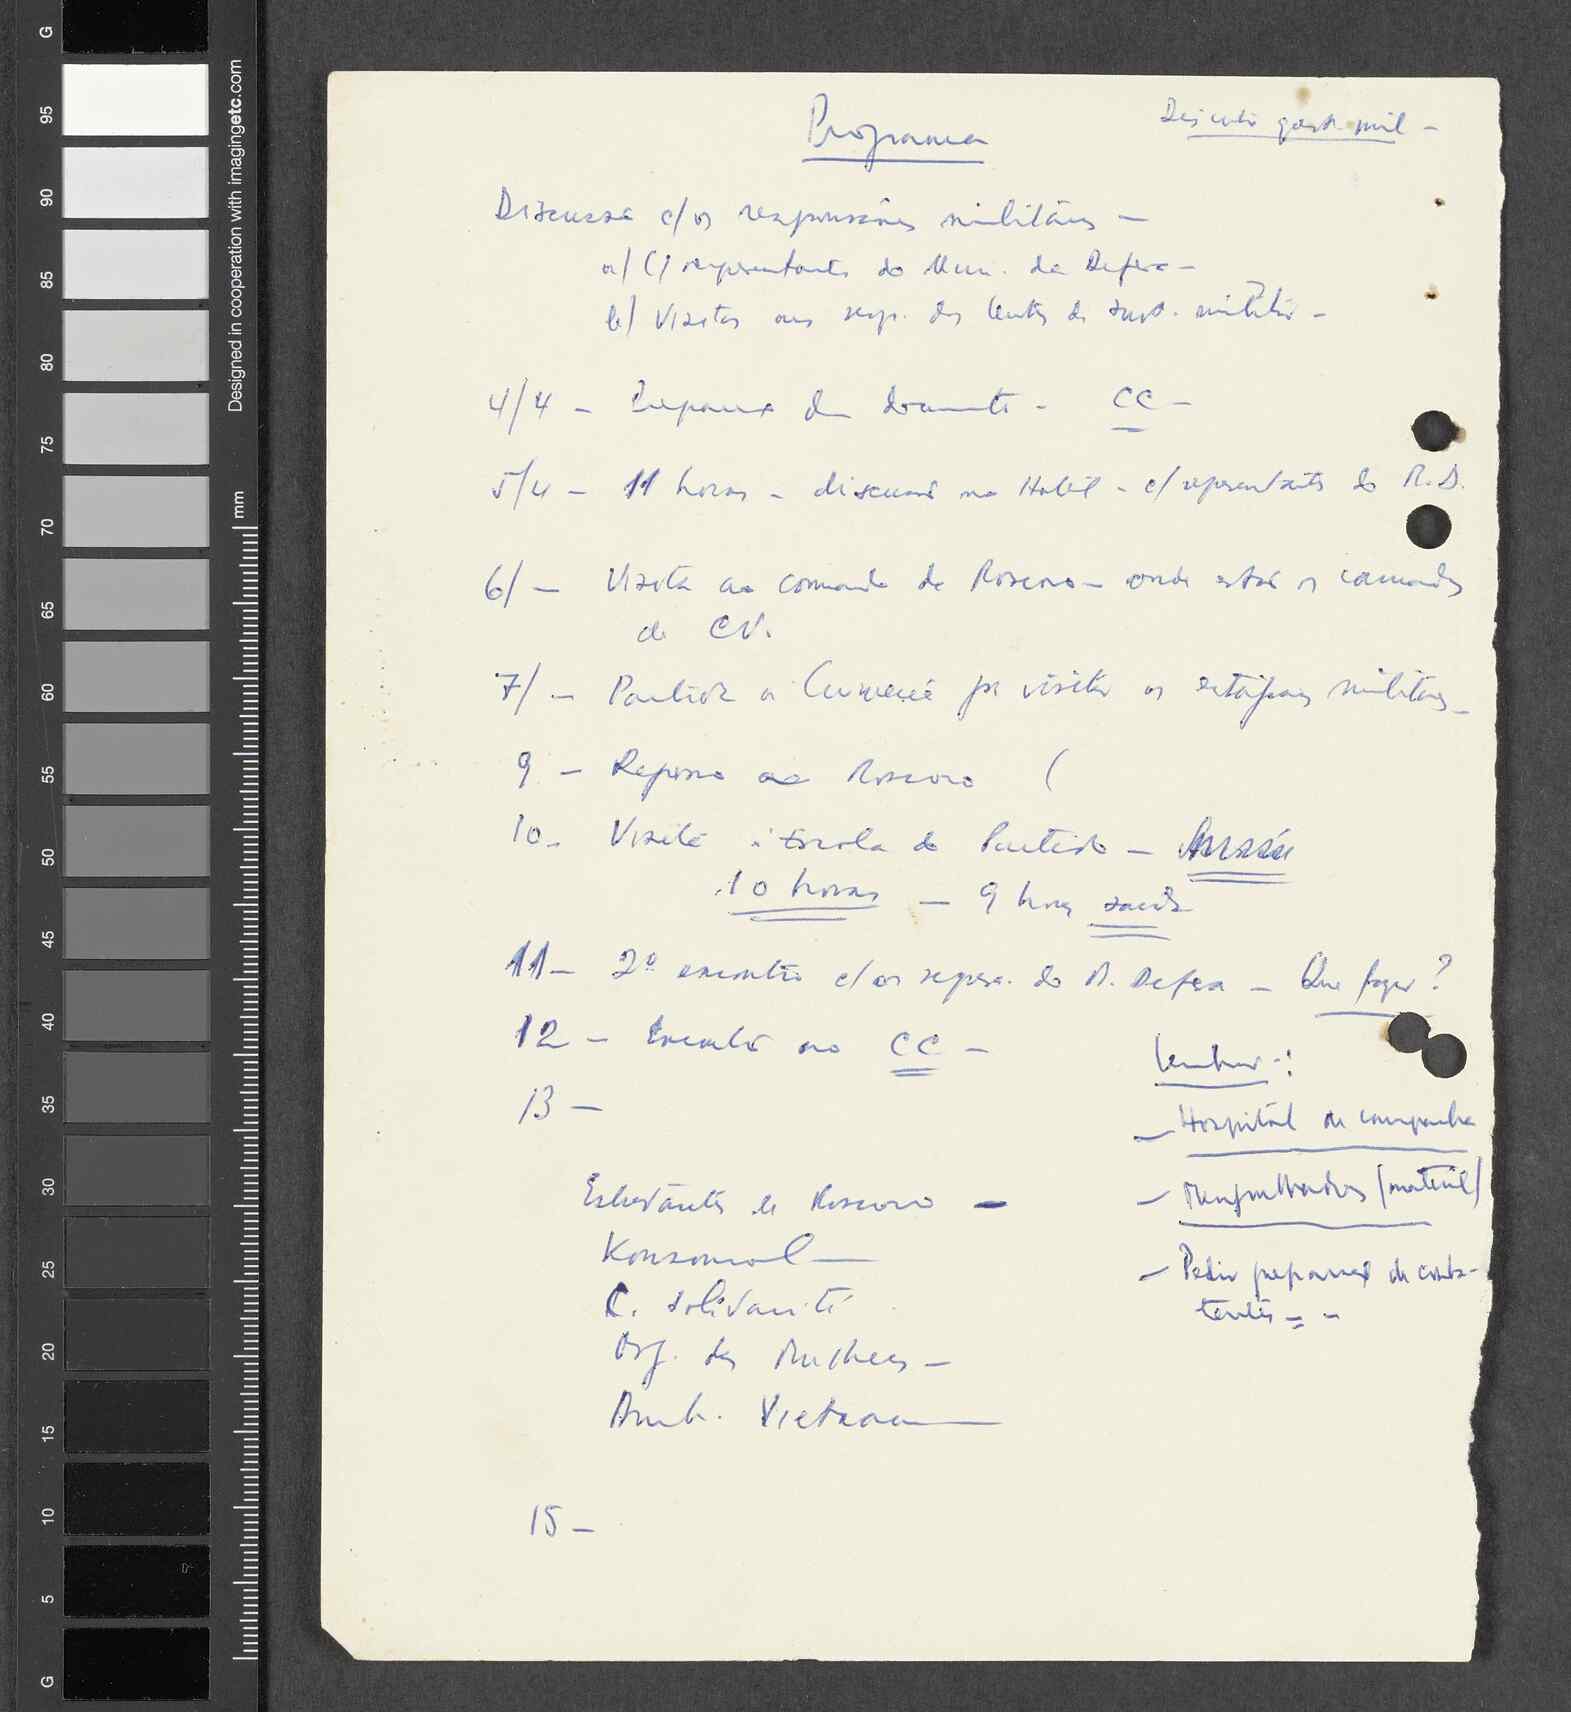 Programa
Discutir quest. mil -
Discussão c/os responsáveis militares —
a/ C/ representantes do Min. da Defesa -
b/ Visitas aos resp. dos Centros de inst. militar -
4/4 - de documentos - CC -
5/4 - 11 horas - discussão no Hotel - c/ representantes do M.D.
6/ - Visita ao comando de Moscovo - onde estão os camaradas
de CV.
7/ - Partida a p. visitar os estágios militares -
9 - Regresso a Moscovo (
10 - Visita à Escola do Partido -
10 horas — 9 horas saída
11 - 2º encontro c/os repres. do M. Defesa - Que fazer?
12 - Encontro no CC -
13 -
Lembrar -:
- Hospital de campanha
- Mergulhadores (material)
- Pedir preparação de comba-
tentes = -
Estudantes de Moscovo -
Konsomol —
C. Solidarité
Org. das Mulheres -
Amb. Vietnam —
15 -
Designed in cooperation with imagingetc.com
mm
G
95
90
85
80
75
70
65
60
55
50
45
40
35
30
25
20
15
10
5
G